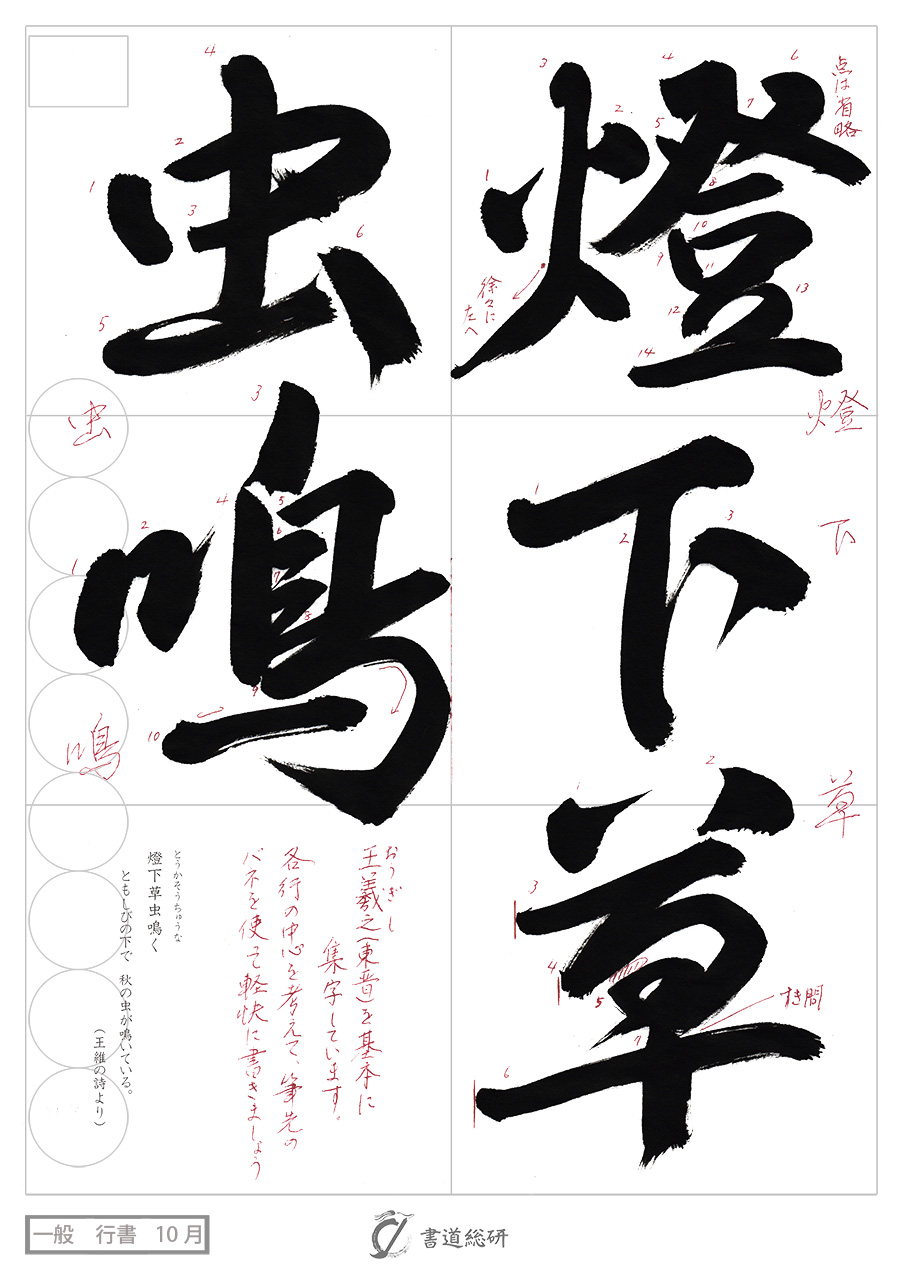 燈下草
虫鳴
点は省略
徐々に
左へ
燈
下
草
すき間
虫
鳴
おうぎし
王羲之(東晋)を基本に
集字しています。
各行の中心を考えて、筆先の
バネを使って軽快に書きましょう
とうかそうちゅうな
燈下草虫鳴く
ともしびの下で 秋の虫が鳴いている。
(王維の詩より)
一般 行書 10月
書道総研